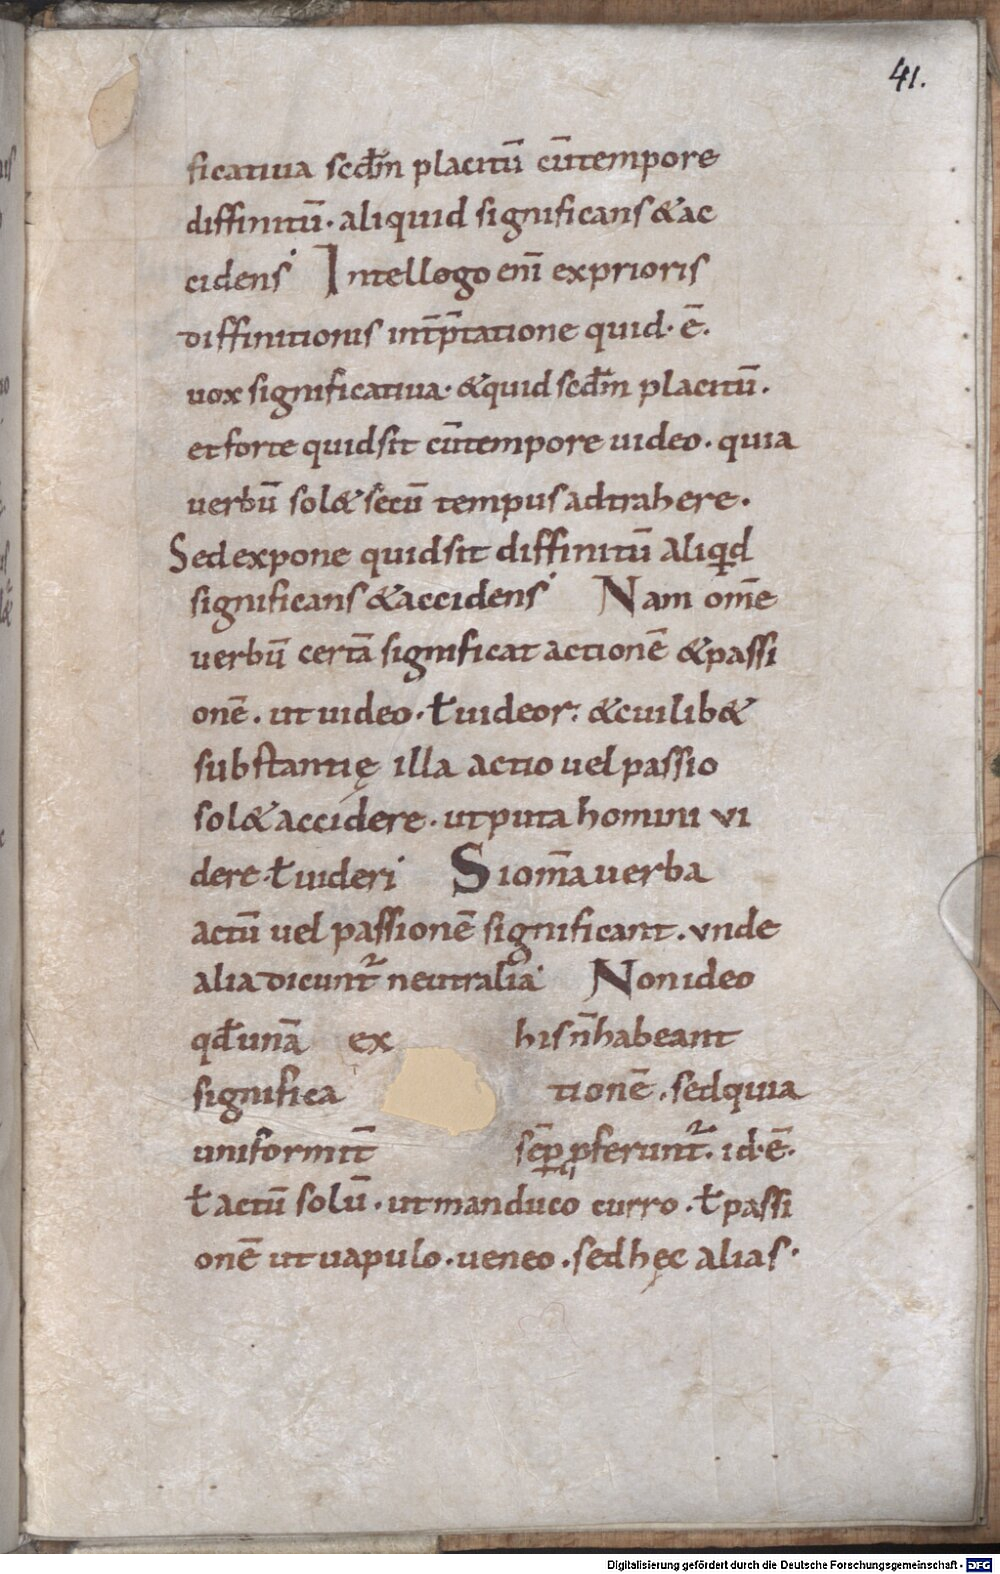 41.
ficatiua scđm placitū cūtempore
diffinitū· aliquid significans &ac
cidens Intellogo enī exprioris
diffinitionis int̄p̄tatione quid· ē·
uox significatiua· &quid scđm placitū·
et forte quid sit cūtempore uideo· quia
verbū sol& secū tempus adtrahere·
Sed expone quid sit diffinitū aliqd
significans &accidens Nam om̄e
verbū certā significat actionē &passi
onē· ut uideo· ł uideor: &cuilib&
substantię illa actio uel passio
sol& accidere· utputa homini vi
dere· ł uideri Si om̄a uerba
actū uel passionē significant· vnde
alia dicunt᷑ neutralia Non ideo
qđ unā ex his n̄ habeant
significa tionē· sed quia
uniformit̄ sēp ꝓferunt᷑· id·ē·
ł actū solū· ut manduco curro· ł passi
onē ut uapulo· ueneo· sed hęc alias·
Digitalisierung gefördert durch die Deutsche Forschungsgemeinschaft - DFG